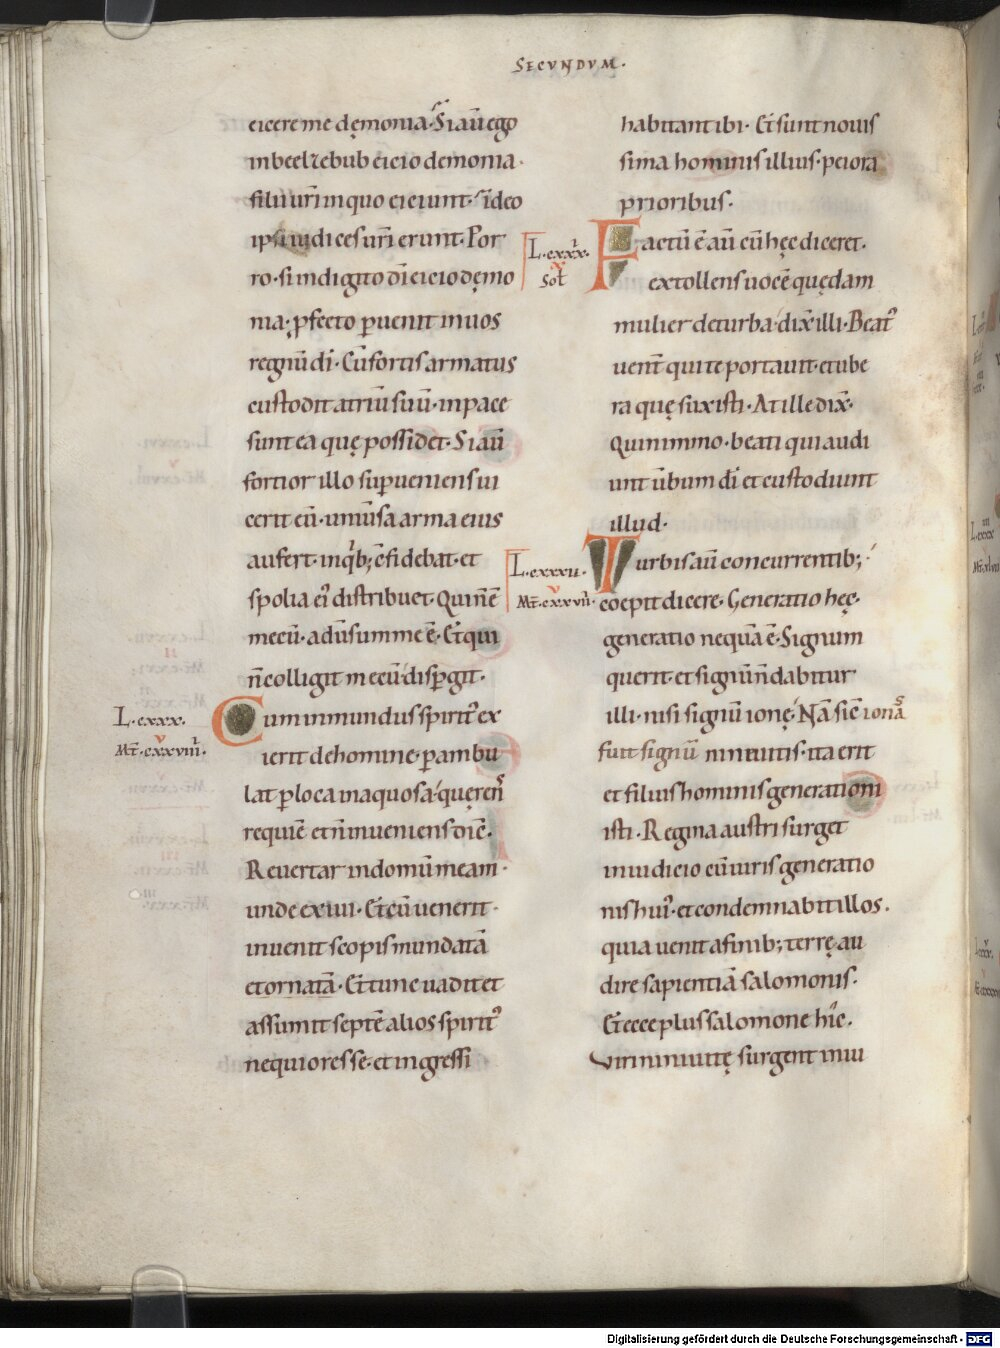 SECVNDVM·
eicere me dęmonia· Si aū ego
in beelzebub eicio demonia·
filii ur̄i in quo eiciunt· ideo
ipsi iudices ur̄i erunt· Por
ro· si in digito dī eicio dęmo
nia· p̱fecto ꝑuenit in uos
regnū dī· Cū fortis armatus
custodit atriū suū· in pace
sunt ea quę possidet· Si aū
fortior illo suꝑueniens ui
cerit eū· uniuersa arma eius
aufert· in q̇b; cfidebat· et
spolia ei' distribuet· Qui n̄ ē
mecū· aduersum me ē· Et qui
n̄ colligit mecū· disꝑgit·
L·cxxx·
Mt̄·cxxviiii·
Cum inmundus spirit' ex
ierit de homine· ꝑambu
lat ꝑ loca inaquosa· quęrens
requiē et n̄ inueniens dic̄·
Reuertar in domū meam·
unde exiui· Et cū uenerit·
inuenit scopis mundatā
et ornatā· Et tunc uadit et
assumit septē alios spirit'
nequiores se· et ingressi
habitant ibi· Et sunt nouis
sima hominis illius· peiora
prioribus·
L·cxxxi·
Sol̄
Factū ē aū cū hęc diceret·
extollens uocē quędam
mulier de turba· dix̄ illi· Beat'
uent̄ qui te portauit· et ube
ra quę suxisti· At ille dix̄·
Quinimmo· beati qui audi
unt ūbum dī et custodiunt
illud·
L·cxxxii·
Mt̄·cxxvii·
Turbis aū concurrentib;
coepit dicere· Generatio hęc·
generatio nequā ē· Signum
querit· et signū n̄ dabitur
illi· nisi signū ionę· Nā sic̄ iona
fuit signū niniuitis· ita erit
et filius hominis generationi
isti· Regina austri surget
in iudicio cū uiris generatio
nis hui'· et condemnabit illos·
quia uenit a finib; terrę au
dire sapientiā salomonis·
Et ecce plus salomone hic·
Viri niniuitę surgent in iu
Digitalisierung gefördert durch die Deutsche Forschungsgemeinschaft - DFG